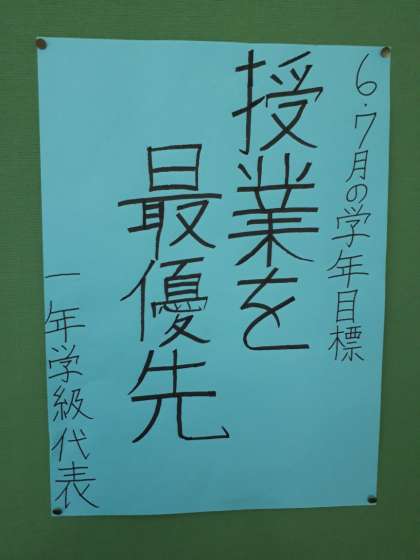 6・7月の学年目標
授業を
最優先
一年学級代表